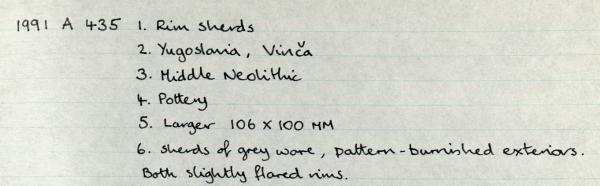 1991 A 435 1. Rim sherds
2. Yugoslavia, Vinča
3. Middle Neolithic
4. Pottery
5. Larger 106 x 100 MM
6. sherds of grey ware, pattern-burnished exteriors.
Both slightly flared rims.